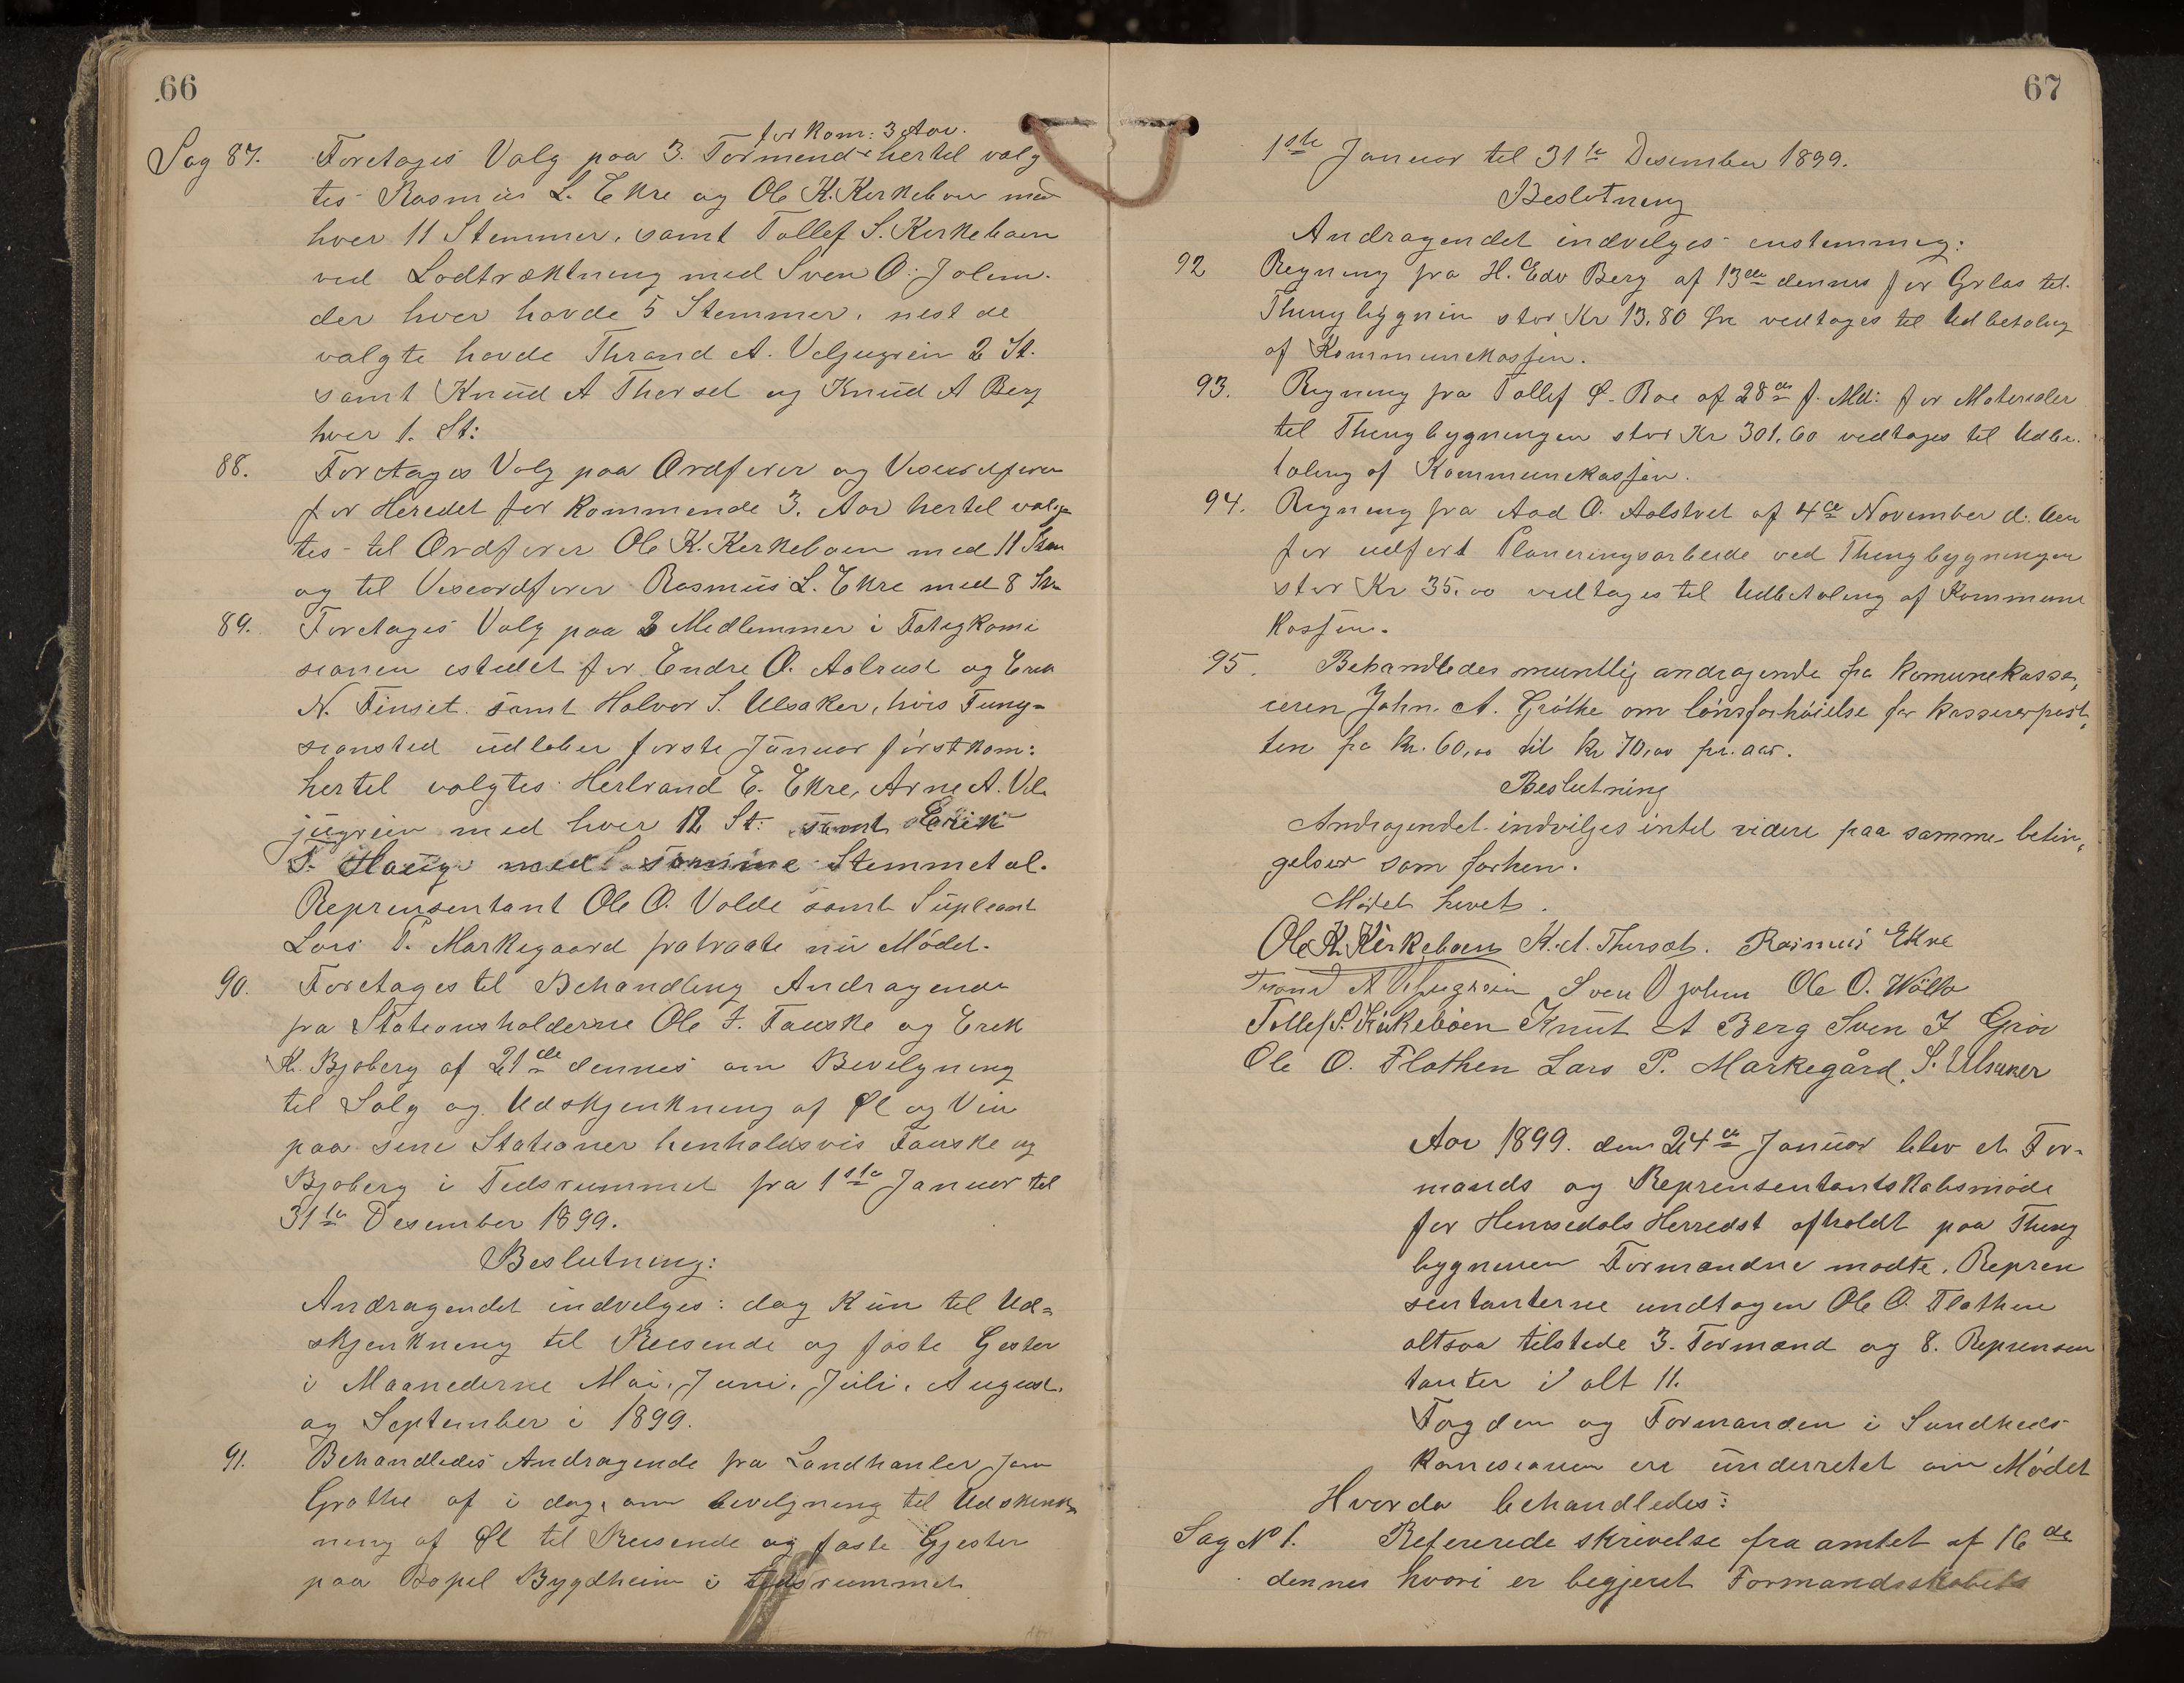 66
for kom: 3 Aar.
Sag 87. Foretages Valg paa 3. Formend hertil valg
tes Rasmus L. Ekre og Ole K. Kirkeboen med
hver 11 Stemmer, samt Tollef S. Kirkeboen
ved Lodtræktning med Sven O. Jolem.
der hver havde 5 Stemmer, nest de
valgte havde Thrond A. Veljugrein 2 St.
samt Knud A Thorset og Knud A Berg
hver 1. St:
88. Foretages Valg paa Ordfører og Viseordfører
for Heredet for kommende 3. Aar hertil valg=
tes til Ordfører Ole K. Kirkeboen med 11 Stem
og til Viseordfører Rasmus L. Ekre med 8 Stm
89. Foretages Valg paa 3 Medlemmer i Fatigkomi
sionen istedet for Endre O. Aalrust og Erik
N. Finset samt Halvor S. Ulsaker, hvis Fung=
sionsted udløber første Januar førstkom:
hertil valgtes Herbrand E. Ekre, Arne A. Vel
jugrein med hver 12 St: samt Erik
T. Haug med samme Stemmetal.
Reprensentant Ole O. Volde samt Supleant
Lars P. Markegaard fratraate nu Mödet.
90. Foretages til Behandling Andragende
fra Stationsholderne Ole T. Fauske og Erik
K. Bjøberg af 21de dennes om Bevilgning
til Salg og Udskjenkning af Øl og Vin
paa sine Stationer henholdsvis Fauske og
Bjøberg i Tidsrummet fra 1ste Januar til
31te Desember 1899.
Beslutning:
Andragendet indvilges: dog kun til Ud=
skjenkning til Reisende og faste Gester
i Maanederne Mai, Juni, Juli, August.
og September i 1899.
91. Behandledes Andragende fra Landhanler John
Grøthe af i dag, om bevilgning til Udskjenk
ning af Øl til Reisende og faste Gjester
paa Bopel Bygdheim i tidsrummet
67
1ste Januar til 31te Desember 1899.
Beslutning
Andragendet indvilges enstemmig:
92 Regning fra H. Edv Berg af 13de dennes for Gvlas til
Thingbygnin stor Kr 13,80 Øre vedtages til Udbetaling
af Kommunekassen.
93. Regning fra Tollef O. Roe af 28de f. Md: for Materialer
til Thingbygningen stor Kr 301,60 vedtages til Udbe.
taling af Kommunekassen.
94. Regning fra Aad O. Aalstvet af 4de November d. Aar
for udført Planeringsarbeide ved Thingbygningen
stor Kr 35,00 vedtages til Udbetaling af Kommune
kassen.
95. Behandledes muntlig andragende fra komunekasse,
reren John. A. Gröthe om lönsforhöielse for kassererpost,
ten fra Kr. 60,00 til Kr 70,00 pr. aar.
Beslutning
Andragendet indvilges intil videre paa samme betin,
gelser som forhen.
Mödet hevet.
Ole K. Kirkeboen K. A. Thorset. Rasmus Ekre
Trond A Veljugrein Sven O Jolem Ole O. Wölld
Tollef S. Kirkeböen Knut A Berg Sven I Gröv
Ole O. Flathen Lars P. Markegård. S. Ulsaker
Aar 1899. den 24de Januar blev et For-
mands og Reprensentantskabsmöde
for Hemsedals Herredst afholdt paa Thing
bygningen Formændne mødte, Repren
sentanterne undtagen Ole O. Flathen
altsaa tilstede 3. Formænd og 8. Reprensen
tanter i alt 11.
Fogden og Formanden i Sundheds
komisionen ere underretet om Mödet
Hvorda behandledes:
Sag No 1. Refererede skrivelse fra amtet af 16de
dennes hvori er begjeret Formandsskabets